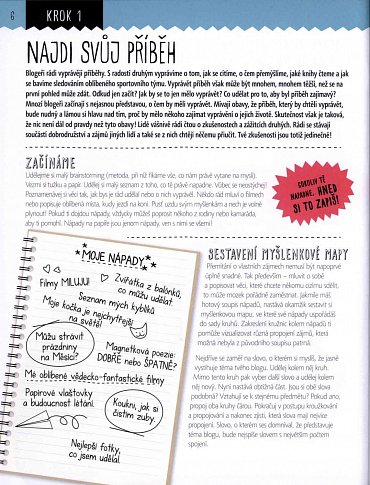 6
KROK 1
NAJDI SVŮJ PŘÍBĚH
Blogeři rádi vyprávějí příběhy. S radostí druhým vyprávíme o tom, jak se cítíme, o čem přemýšlíme, jaké knihy čteme a jak
se bavíme sledováním oblíbeného sportovního týmu. Vyprávět příběh však může být mnohem, mnohem těžší, než se na
první pohled může zdát. Odkud jen začít? Jak by se to jen mělo vyprávět? Co udělat pro to, aby byl příběh zajímavý?
Mnozí blogeři začínají s nejasnou představou, o čem by měli vyprávět. Mívají obavy, že příběh, který by chtěli vyprávět,
bude nudný a lámou si hlavu nad tím, proč by mělo někoho zajímat vyprávění o jejich životě. Skutečnost však je taková,
že nic není dál od pravdy než tyto obavy! Lidé vášnivě rádi čtou o zkušenostech a zážitcích druhých. Rádi se stávají
součástí dobrodružství a zájmů jiných lidí a také se z nich chtějí něčemu přiučit. Tvé zkušenosti jsou totiž jedinečné!
ZAČÍNÁME
Udělejme si malý brainstorming (metoda, při níž říkáme vše, co nám právě vytane na mysli).
Vezmi si tužku a papír. Udělej si malý seznam z toho, co tě právě napadne. Vůbec se neostýchej!
Poznamenávej si věci tak, jak bys je rád udělal nebo o nich vyprávěl. Někdo rád mluví o filmech
nebo popisuje oblíbená místa, kudy jezdí na koni. Pusť uzdu svým myšlenkám a nech je volně
plynout! Pokud ti dojdou nápady, vždycky můžeš poprosit někoho z rodiny nebo kamaráda,
aby ti pomohl. Nápady na papíře jsou jenom nápady, ven s nimi se všemi!
COKOLIV TĚ
NAPADNE, HNED
SI TO ZAPIŠ!
MOJE NÁPADY
Filmy MILUJU!
Zvířátka z balónků,
co můžu udělat
Seznam mých kyblíků
Moje kočka je nejchytřejší
na světě!
Můžu strávit
prázdniny
na Měsíci?
Magnetková poezie:
DOBŘE nebo ŠPATNĚ?
Mé oblíbené vědecko-fantastické filmy
Papírové vlaštovky
a budoucnost létání.
Koukni, jak si
čistím zuby.
Nejlepší fotky,
co jsem udělal.
SESTAVENÍ MYŠLENKOVÉ MAPY
Přemítání o vlastních zájmech nemusí být napoprvé
úplně snadné. Tak především – mluvit o sobě
a popisovat věci, které chcete někomu cizímu sdělit,
to může mozek pořádně zaměstnat. Jakmile máš
hotový soupis nápadů, nastává okamžik sestavit si
myšlenkovou mapu, ve které své nápady uspořádáš
do sady kruhů. Zakreslení kružnic kolem nápadů ti
pomůže vizualizovat různá propojení zájmů, která
možná nebyla z původního soupisu patrná.
Nejdříve se zaměř na slovo, o kterém si myslíš, že jasně
vystihuje téma tvého blogu. Udělej kolem něj kruh.
Mimo tento kruh pak vyber další slova a udělej kolem
něj nový. Nyní nastává obtížná část. Jsou si obě slova
podobná? Vztahují se k stejnému předmětu? Pokud ano,
propoj oba kruhy čárou. Pokračuj v postupu kroužkování
a propojování a nakonec zjisti, která slova mají nejvíce
propojení. Slovo, o kterém ses domníval, že představuje
téma blogu, bude nejspíše slovem s největším počtem
spojení.